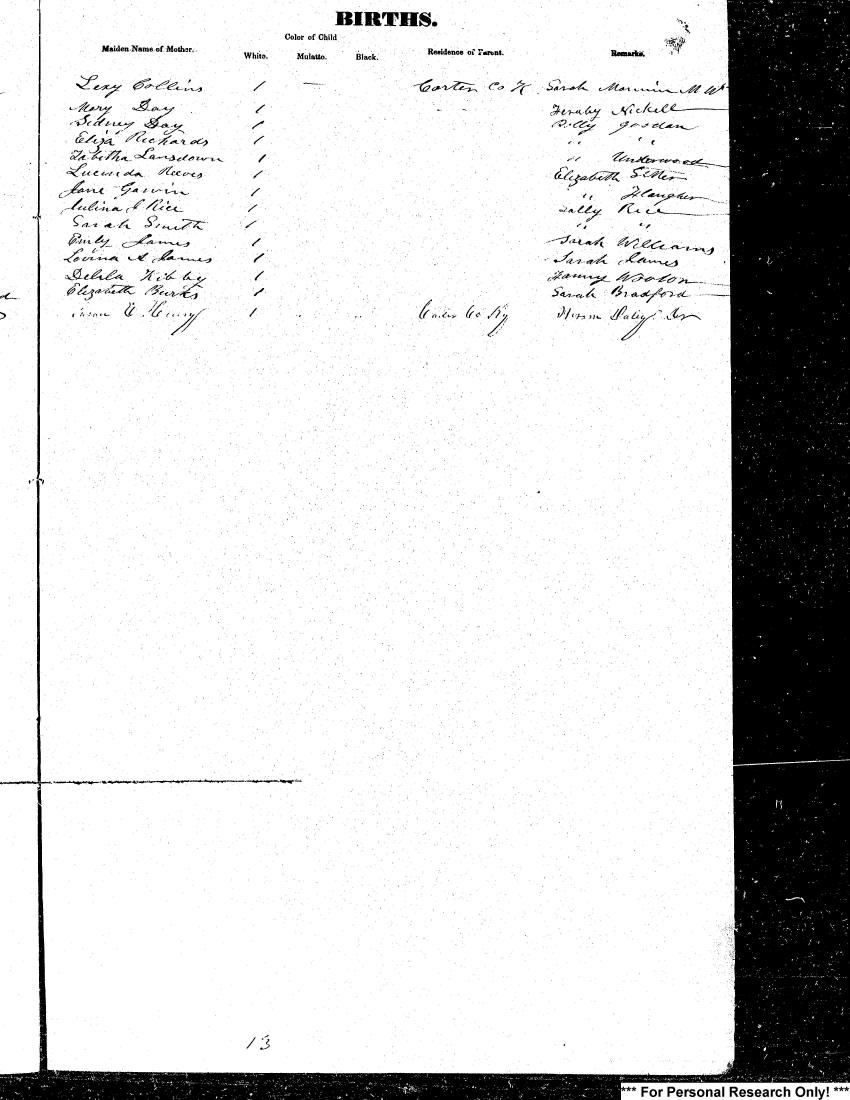 BIRTHS.
Color of Child
Maiden Name of Mother. White. Mulatto. Black. Residence of Parent. Remarks.
Lexy Collins 1 — Carter Co K Sarah M W
Mary Day 1 Nickell
Sidney Day 1 Polly
Eliza Richards 1 " "
Tabitha Lansdown 1 " Underwood
Lucinda Reeves 1 Elizabeth
Jane Gawin 1 "
J Rice 1 Sally Rice
Sarah Smith 1 " "
Emily James 1 Sarah Williams
Lovina A James 1 Sarah James
Delila Kibby 1 Fanny Wooton
Elizabeth Burks 1 Sarah Bradford
Henry 1 " " Carter Co Ky Hiram
13
*** For Personal Research Only! ***